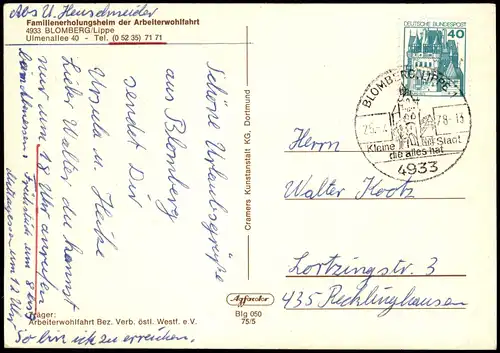 Abs U. Henschneider
Familienerholungsheim der Arbeiterwohlfahrt
4933 BLOMBERG/Lippe
Ulmenallee 40 - Tel. (0 52 35) 71 71
Schöne Urlaubsgrüße
aus Blomberg
sendet Dir
Ursula u. Heike
Lieber Walter du kannst
nur um 18 Uhr anrufen
Frühstück um 8 Uhr
Mittagessen um 12 Uhr
So bin ich zu erreichen.
Träger:
Arbeiterwohlfahrt Bez. Verb. östl. Westf. e.V.
Cramers Kunstanstalt KG, Dortmund
Agfacolor
Blg 050
75/5
DEUTSCHE BUNDESPOST
40
BLOMBERG, LIPPE 1
78-13
Kleine Stadt
die alles hat
4933
Herrn
Walter Kootz
Lortzingstr. 3
435 Recklinghausen